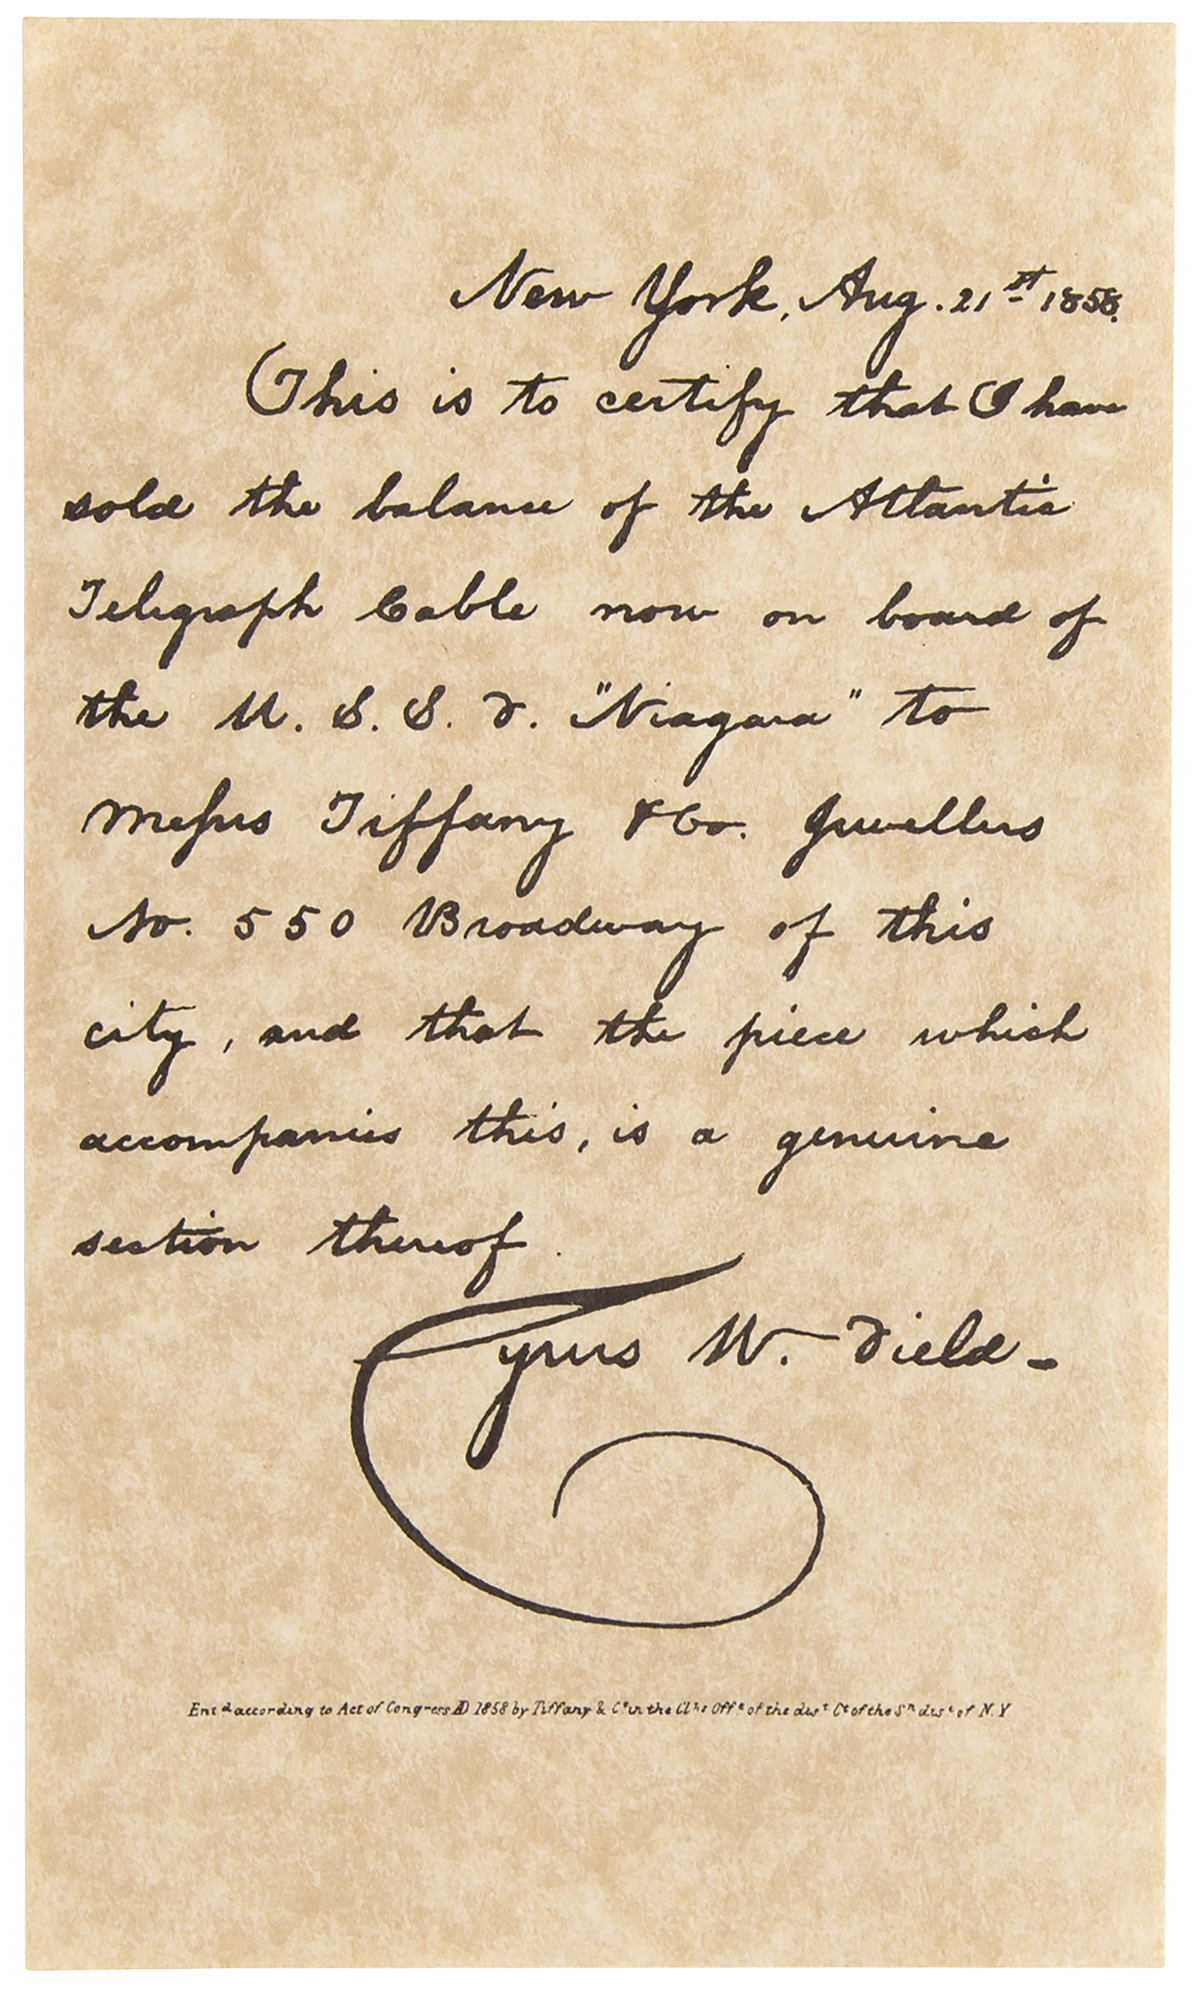 New York, Aug. 21st 1858.
This is to certify that I have
sold the balance of the Atlantic
Telegraph Cable now on board of
the U. S. S. F. "Niagara" to
Messrs Tiffany & Co. Jewellers
No. 550 Broadway of this
city, and that the piece which
accompanies this, is a genuine
section thereof.
Cyrus W. Field-
Entd according to Act of Congress AD 1858 by Tiffany & Co in the Clks Offe of the dist Ct of the Sn dist of N.Y